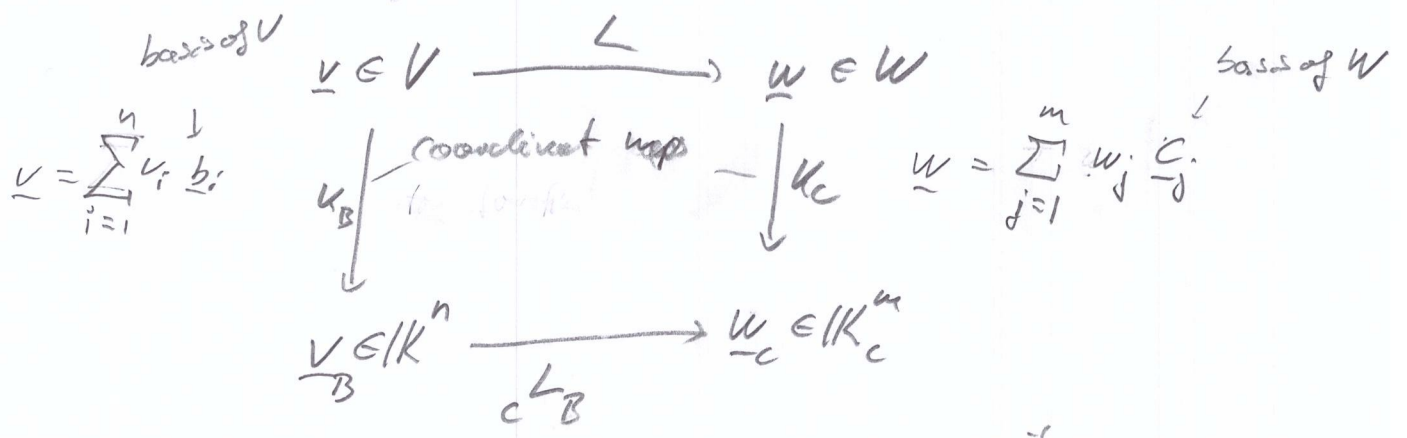 basis of V
v ∈ V
L
w ∈ W
basis of W
v = ∑_{i=1}^{n} v_i b_i
K_B
coordinat maps
K_C
w = ∑_{j=1}^{m} w_j c_j
v_B ∈ 𝕂^n
_C L_B
w_C ∈ 𝕂_C^m